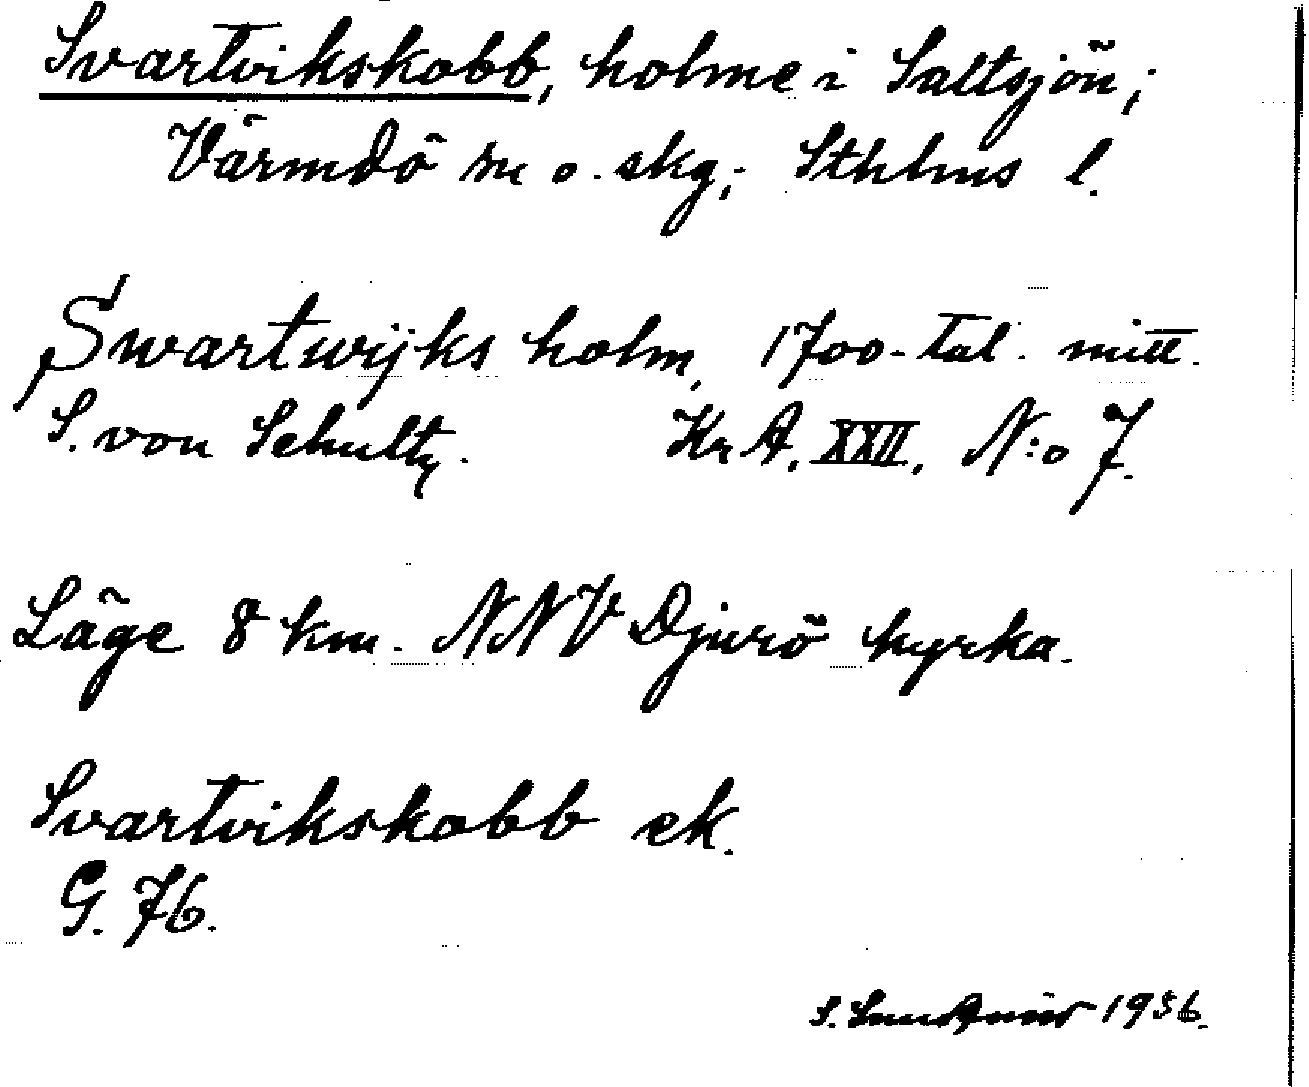 Svartvikskobb, holme i Saltsjön;
Värmdö sn o. skg; Sthlms l.
Swartwijks holm, 1700-tal. mitt.
S. von Schultz. Kr A, XXII, N:o 7.
Läge 8 km. NNV Djurö kyrka.
Svartvikskobb ek.
G. 76.
S. 1956.